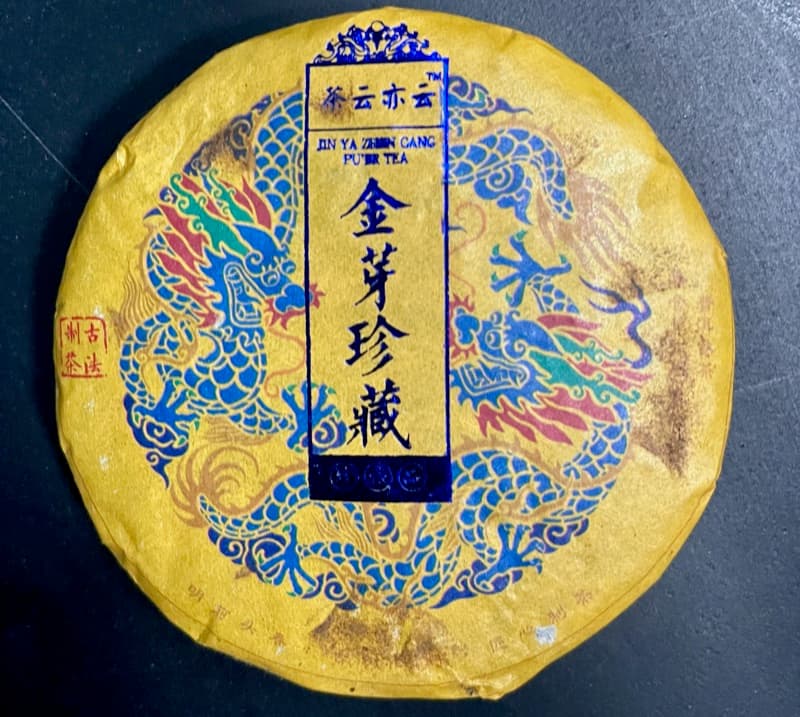 茶云亦云™
JIN YA ZHEN CANG
PU'ER TEA
金芽珍藏
古法
制茶